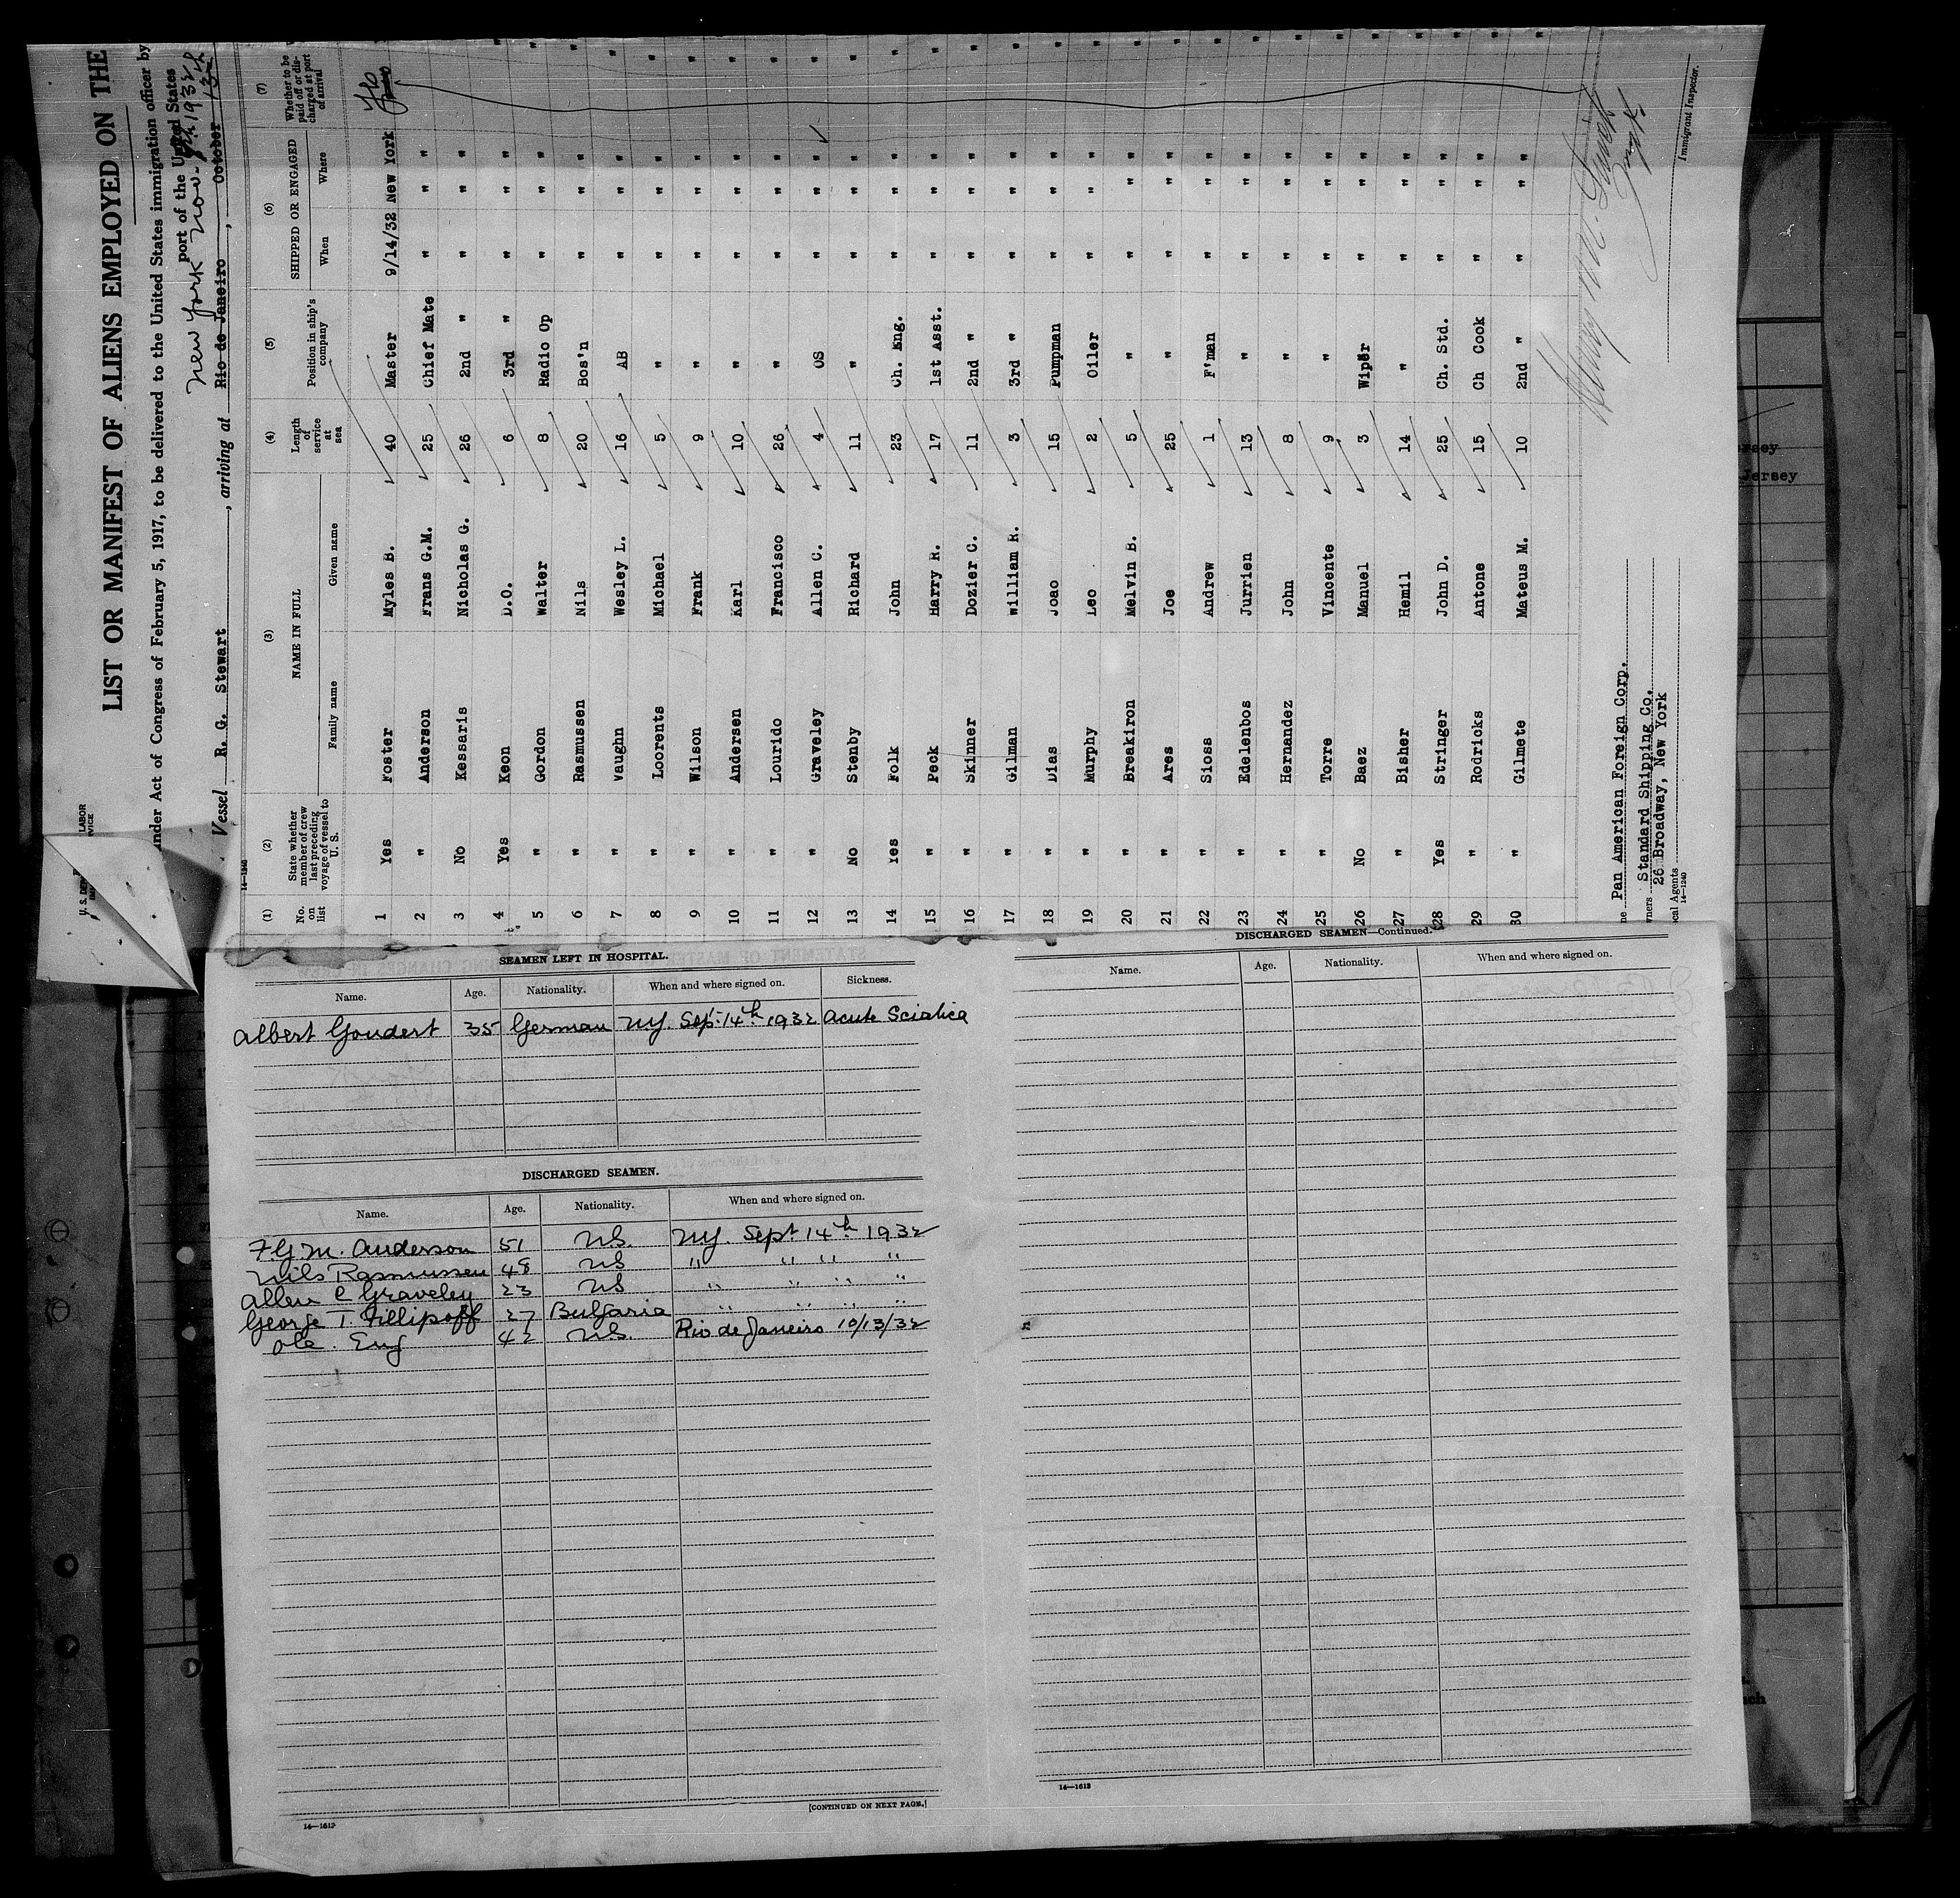 LIST OR MANIFEST OF ALIENS EMPLOYED ON THE
nder Act of Congress of February 5, 1917, to be delivered to the United States immigration officer by
port of the United States
New York Nov. 1932
Vessel R. G. Stewart, arriving at Rio de Janeiro, October 13
U. S. DEP LABOR
14—1240
(1) (2) (3) (4) (5) (6) (7)
No. on list State whether member of crew last preceding voyage of vessel to U. S. NAME IN FULL Length of service at sea Position in ship's company SHIPPED OR ENGAGED Whether to be paid off or discharged at port of arrival
Family name Given name When Where
1 Yes Foster Myles B. 40 Master 9/14/32 New York
2 " Anderson Frans G.M. 25 Chief Mate " " "
3 No Kessaris Nicholas G. 26 2nd " " " "
4 Yes Keon D.O. 6 3rd " " " "
5 " Gordon Walter 8 Radio Op " " "
6 " Rasmussen Nils 20 Bos'n " " "
7 " Vaughn Wesley L. 16 AB " " "
8 " Loorents Michael 5 " " " "
9 " Wilson Frank 9 " " " "
10 " Andersen Karl 10 " " " "
11 " Lourido Francisco 26 " " " "
12 " Graveley Allen C. 4 OS " " "
13 No Stenby Richard 11 " " " "
14 Yes Folk John 23 Ch. Eng. " " "
15 " Peck Harry R. 17 1st Asst. " " "
16 " Skinner Dozier C. 11 2nd " " " "
17 " Gilman William R. 3 3rd " " " "
18 " Dias Joao 15 Pumpman " " "
19 " Murphy Leo 2 Oiler " " "
20 " Breakiron Melvin B. 5 " " " "
21 " Ares Joe 25 " " " "
22 " Sioss Andrew 1 F'man " " "
23 " Edelenbos Jurrien 13 " " " "
24 " Hernandez John 8 " " " "
25 " Torre Vincente 9 " " " "
26 No Baez Manuel 3 Wiper " " "
27 " Bisher Hemil 14 " " " "
28 Yes Stringer John D. 25 Ch. Std. " " "
29 " Rodricks Antone 15 Ch Cook " " "
30 " Gilmete Mateus M. 10 2nd " " " "
Immigrant Inspector.
Pan American Foreign Corp.
wners Standard Shipping Co.
26 Broadway, New York
cal Agents
14—1240
SEAMEN LEFT IN HOSPITAL.
Name. Age. Nationality. When and where signed on. Sickness.
Albert Goudert 35 German NY. Sept. 14th 1932 Acute Sciatica
DISCHARGED SEAMEN.
Name. Age. Nationality. When and where signed on.
F.G.M. Anderson 51 US. NY. Sept 14th 1932
Nils Rasmussen 48 US " " " "
Allen C Graveley 23 US " " " "
George T. Fillipoff 27 Bulgaria " " " "
Ole. Eng 42 US. Rio de Janeiro 10/13/32
[CONTINUED ON NEXT PAGE.]
14—1613
DISCHARGED SEAMEN—Continued.
Name. Age. Nationality. When and where signed on.
14—1613
Jersey